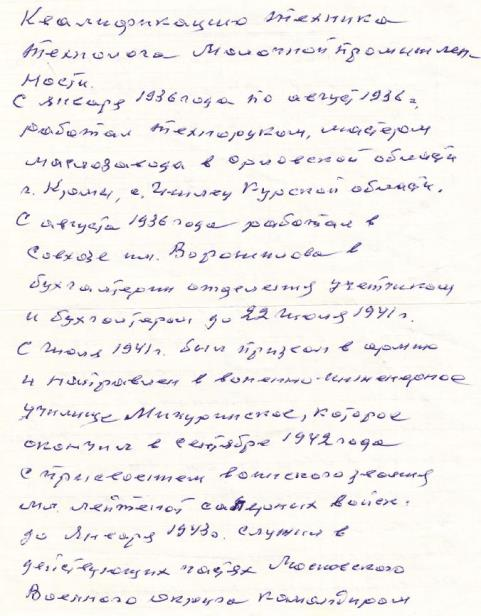 Квалификацию техника
технолога молочной промышлен-
ности.
С января 1936 года по август 1936 г.
работал техноруком, мастером
маслозавода в орловской области
г. Кромы, с. Курской области.
С августа 1936 года работал в
совхозе им. Ворошилова в
бухгалтерии отделения учетчиком
и бухгалтером до 22 июля 1941 г.
С июля 1941 г. был призван в армию
и направлен в военно-инженерное
училище Мичуринское, которое
окончил в сентябре 1942 года
с присвоением воинского звания
мл. лейтенант саперных войск.
до января 1943 г. служил в
действующих частях Московского
Военного округа командиром